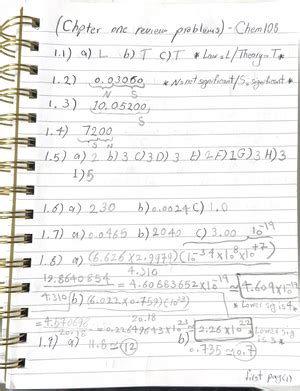 (Chpter one review problems) - Chem 108
1.1) a) L b) T c) T * Law = L / Theory = T *
1.2) 0.03060, * N = not significant / S = significant *
N S
1.3) 10.05200,
S
1.4) 7200
S N
1.5) a) 2 b) 3 C) 3 D) 3 E) 2 F) 1 G) 3 H) 3
I) 5
1.6) a) 230 b) 0.0024 C) 1.0
1.7) a) 0.0465 b) 2040 C) 3.00
1.8) a) (6.626 x 2.9979) (10^-34 x 10^8 x 10^+7)
4.310
= 4.60883652 x 10^-19 ≈ 4.609 x 10^-19
4.310 b) (6.022 x 0.759) (10^23) * Lower sig is 4 *
20.18
≈ 2.26 x 10^22 Lower sig is 3 *
1.9) a) 11.8 ≈ 12 b) 0.735 ≈ 0.7
first page(1)